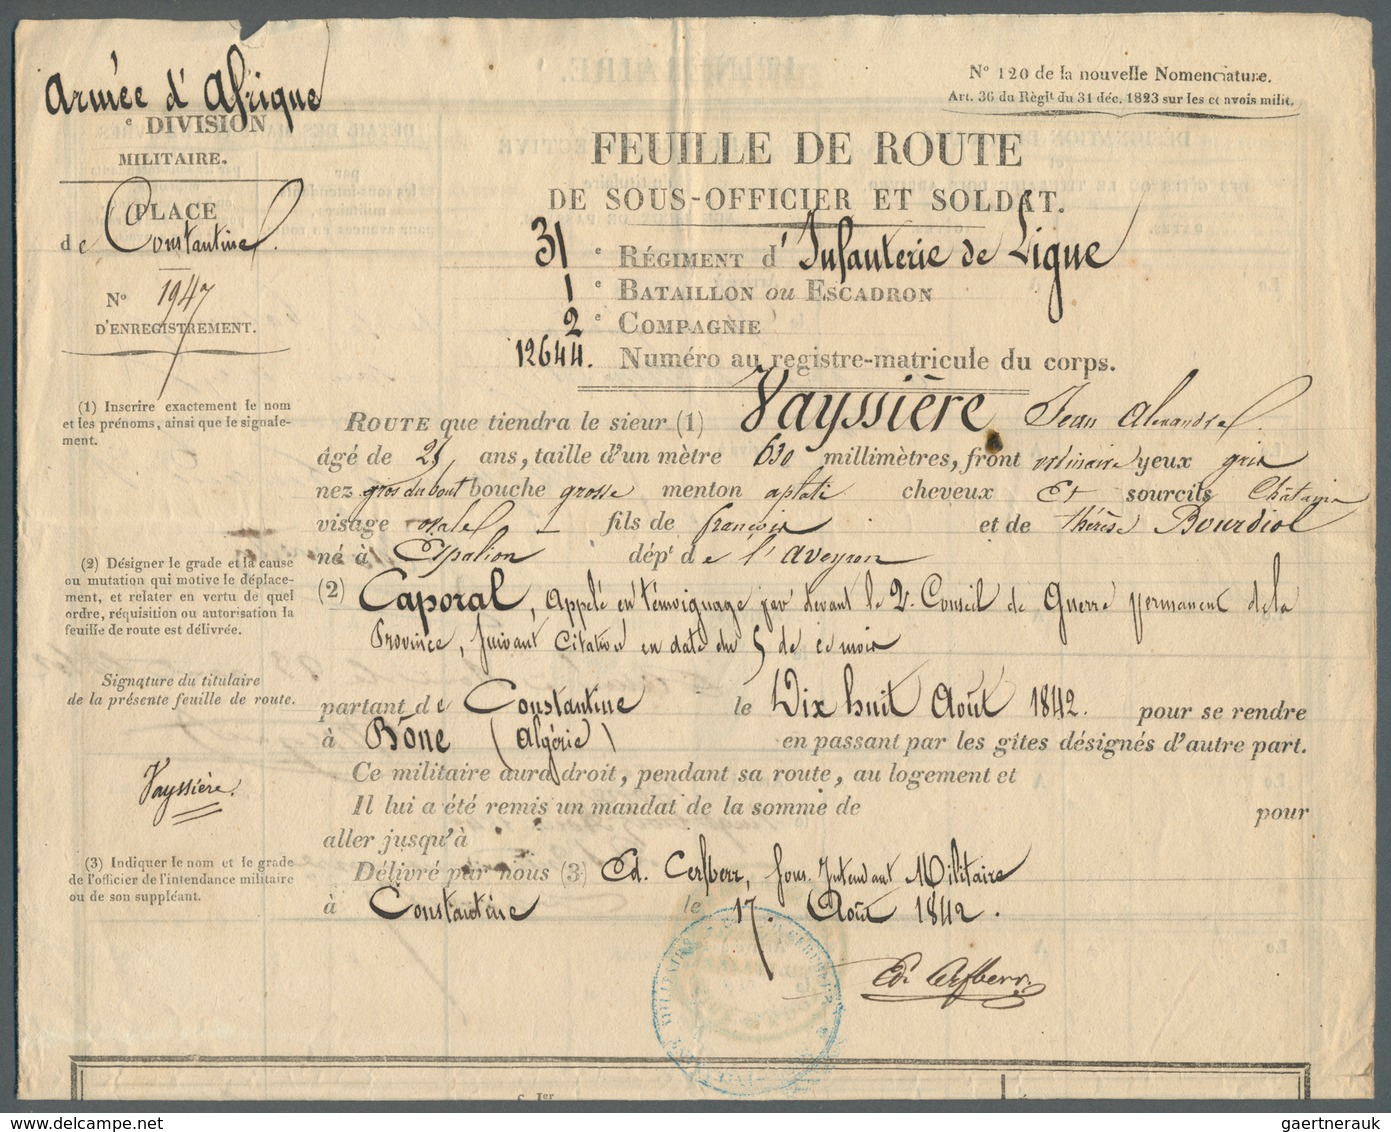 Armée d'Afrique
e DIVISION
MILITAIRE.
PLACE
de Constantine
N° 1947
D'ENREGISTREMENT.
(1) Inscrire exactement le nom
et les prénoms, ainsi que le signale-
ment.
(2) Désigner le grade et la cause
ou mutation qui motive le déplace-
ment, et relater en vertu de quel
ordre, réquisition ou autorisation la
feuille de route est délivrée.
Signature du titulaire
de la présente feuille de route.
Vayssière.
(3) Indiquer le nom et le grade
de l'officier de l'intendance militaire
ou de son suppléant.
N° 120 de la nouvelle Nomenclature.
Art. 36 du Règlt du 31 déc. 1823 sur les convois milit.
FEUILLE DE ROUTE
DE SOUS-OFFICIER ET SOLDAT.
31 e RÉGIMENT d'Infanterie de Ligne
1 e BATAILLON ou ESCADRON
2 e COMPAGNIE
12644. Numéro au registre-matricule du corps.
ROUTE que tiendra le sieur (1) Vayssière Jean Alexandre
âgé de ans, taille d'un mètre 630 millimètres, front ordinaire yeux gris
nez gros du bout bouche grosse menton aplati cheveux et sourcils Châtains
visage ovale fils de françois et de thérèse Bourdiol
né à Espalion dépt de l'aveyron
(2) Caporal, appelé en témoignage par devant le 2e Conseil de Guerre permanent de la
Province, suivant citation en date du 5 de ce mois
partant de Constantine le Dix huit Août 1842. pour se rendre
à Bône (Algérie) en passant par les gîtes désignés d'autre part.
Ce militaire aura droit, pendant sa route, au logement et
Il lui a été remis un mandat de la somme de pour
aller jusqu'à
Délivré par nous (3) Ed. Cerfberr, Sous Intendant Militaire
à Constantine le 17. Août 1842.
Ed. Cerfberr
S. Ier
gaertnerauk